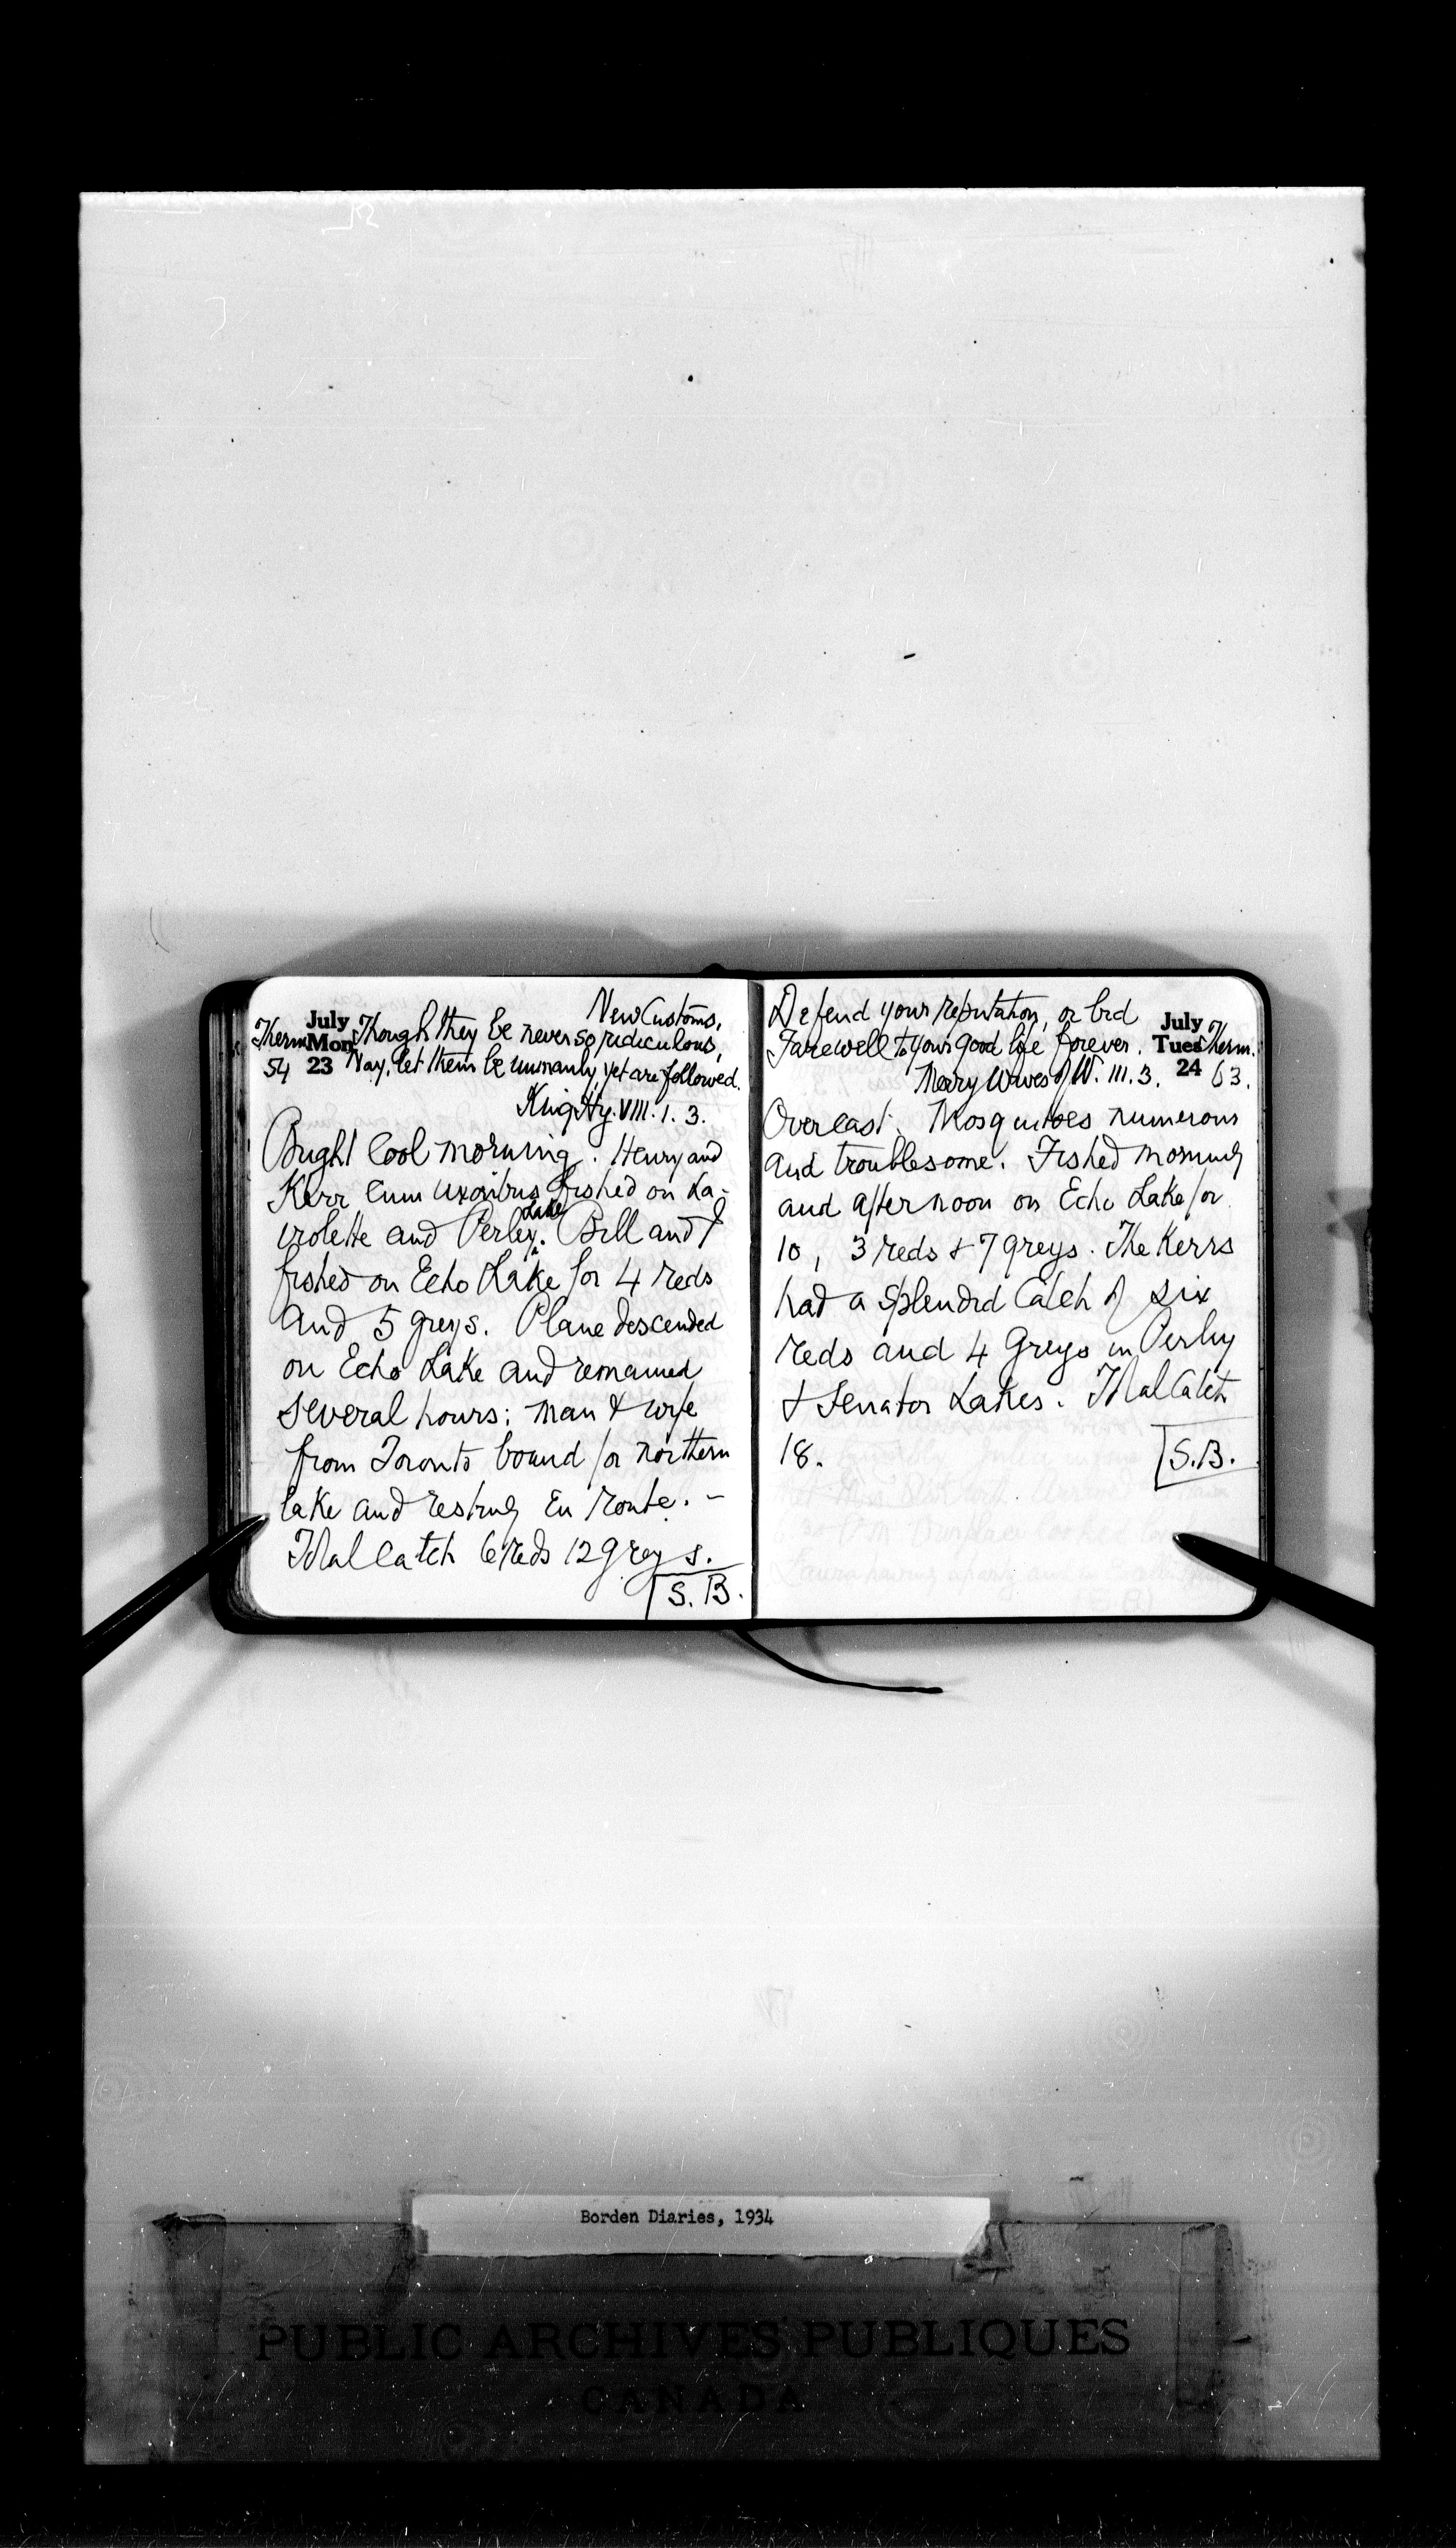 New Customs,
July
Therm Mon Though they be never so ridiculous,
54 23 Nay, let them be unmanly, yet are followed.
King Hy. VIII. 1. 3.
Bright cool morning. Henry and
Kerr cum uxoribus fished on La-
violette and Perley Lake. Bill and I
fished on Echo Lake for 4 reds
and 5 greys. Plane descended
on Echo Lake and remained
several hours; man & wife
from Toronto bound for northern
lake and resting en route. –
Total catch 6 reds 12 greys.
S. B.
Defend your reputation, or bid
July
Farewell to your good life forever. Tues Therm.
Merry Wives of W. III. 3. 24 63.
Overcast. Mosquitoes numerous
and troublesome. Fished morning
and afternoon on Echo Lake for
10, 3 reds & 7 greys. The Kerrs
had a splendid catch of six
reds and 4 greys in Perley
& Senator Lakes. Total catch
18.
S.B.
Borden Diaries, 1934
PUBLIC ARCHIVES PUBLIQUES
CANADA